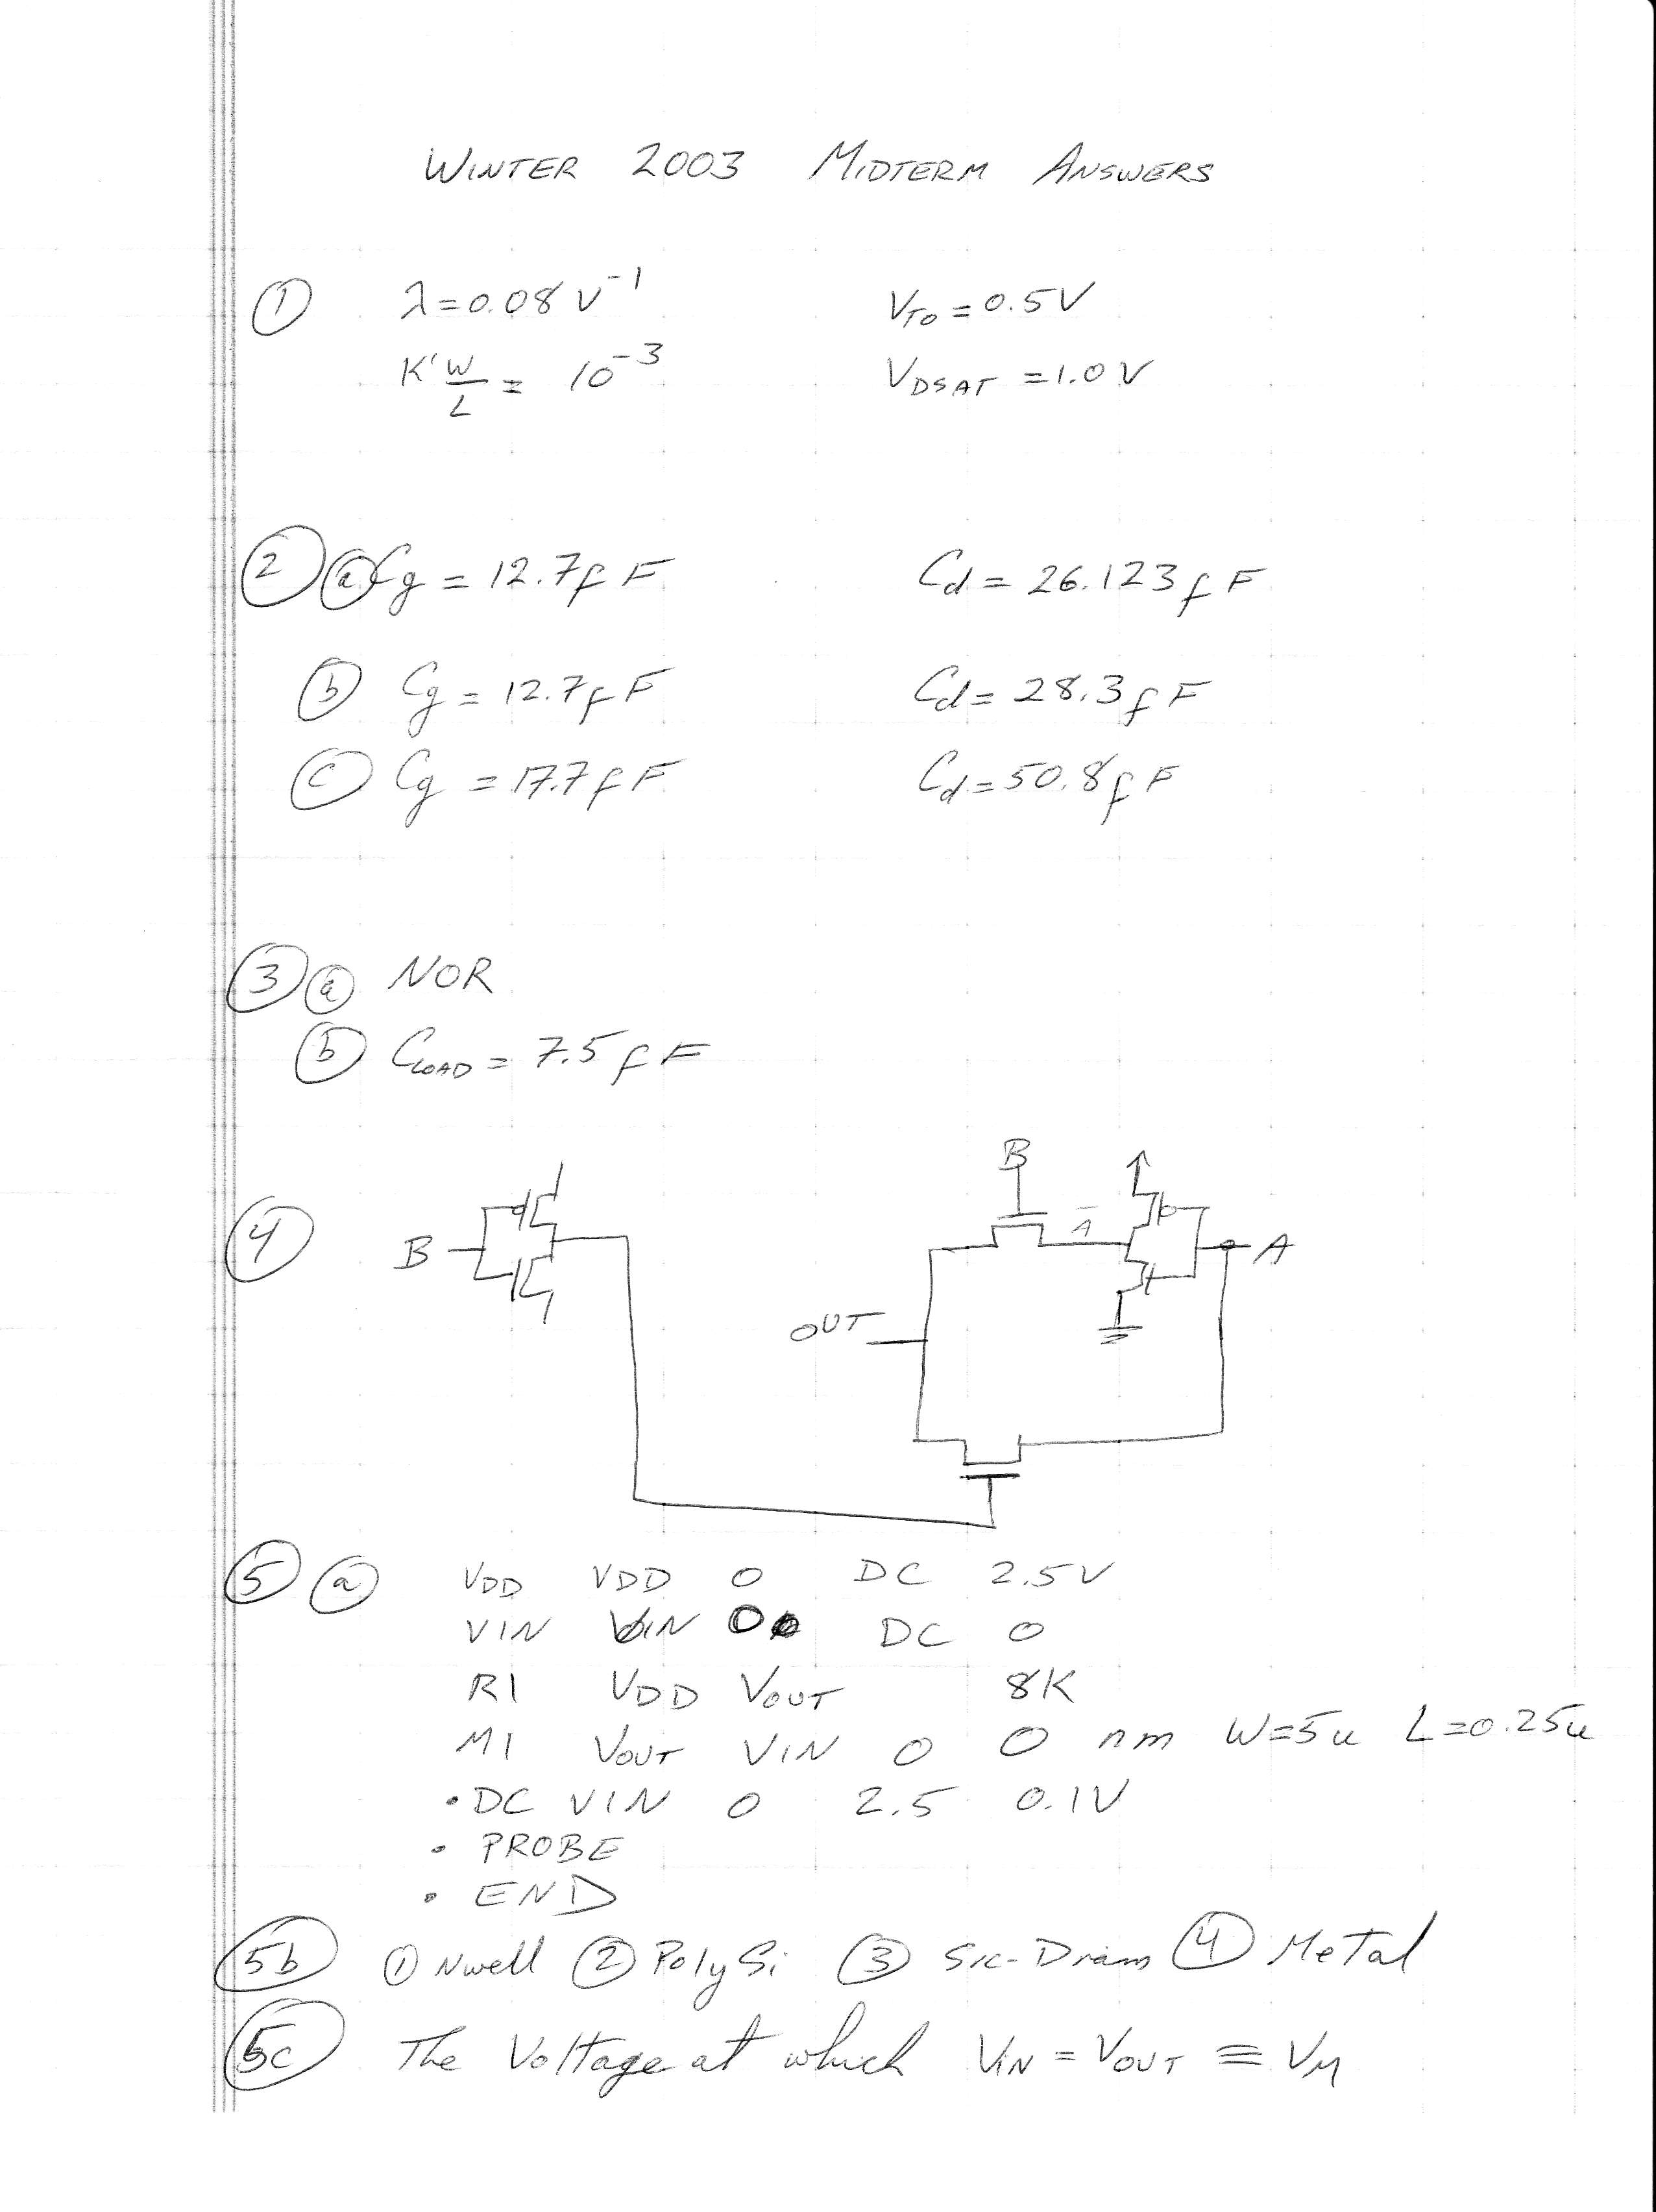 WINTER 2003 MIDTERM ANSWERS
① λ=0.08 V⁻¹ VTO = 0.5V
K' W/L = 10⁻³ VDSAT = 1.0 V
② ⓐ Cg = 12.7fF Cd = 26.123fF
ⓑ Cg = 12.7fF Cd = 28.3fF
ⓒ Cg = 17.7fF Cd = 50.8fF
③ ⓐ NOR
ⓑ CLOAD = 7.5fF
B
④ B Ā A
OUT
⑤ ⓐ VDD VDD 0 DC 2.5V
VIN VIN 0 DC 0
R1 VDD VOUT 8K
M1 VOUT VIN 0 0 nm W=5u L=0.25u
.DC VIN 0 2.5 0.1V
. PROBE
. END
5b ① Nwell ② Poly Si ③ Src-Drain ④ Metal
5c The Voltage at which VIN = VOUT ≡ VM